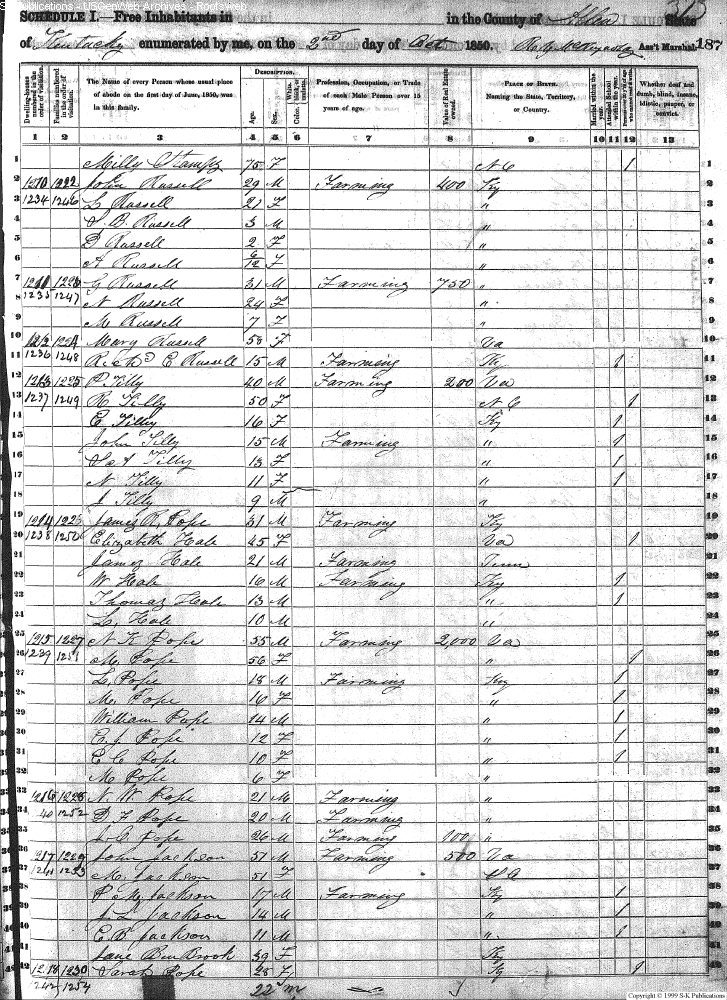 Publications - USGenWeb Archives - Rootsweb
SCHEDULE I.—Free Inhabitants in in the County of Allen State
of Kentucky enumerated by me, on the 2nd day of Oct 1850. Ass't Marshal.
313
187
Dwelling-houses numbered in the order of visitation.
Families numbered in the order of visitation.
The Name of every Person whose usual place of abode on the first day of June, 1850, was in this family.
DESCRIPTION.
Age.
Sex.
Color.
Profession, Occupation, or Trade of each Male Person over 15 years of age.
Value of Real Estate owned.
PLACE OF BIRTH. Naming the State, Territory, or Country.
Married within the year.
Attended School within the year.
Whether deaf and dumb, blind, insane, idiotic, pauper, or convict.
1 2 3 4 5 6 7 8 9 10 11 12 13
1 Milly Stamps 75 F N C / 1
2 1210 1222 John Russell 29 M Farming 400 Ky 2
3 1234 1246 L Russell 27 F " 3
S. B. Russell 3 M "
D Russell 2 F "
A Russell 6/12 F "
7 G Russell 31 M Farming 750 " 7
8 1235 1247 N Russell 24 F " 8
9 M Russell 7 F " 9
10 Mary Russell 58 F Va 10
11 1236 1248 Richd E Russell 15 M Farming Ky / 11
12 1225 P. Tilly 40 M Farming 200 Va 12
13 1237 1249 R Tilly 50 F N C / 13
14 E Tilly 16 F Ky / 14
15 John Tilly 15 M Farming " / 15
16 Tilly 13 F " / 16
17 N Tilly 11 F " / 17
18 J Tilly 9 M " 18
19 1214 James R. Pope 31 M Farming Ky 19
20 1238 1250 Elizabeth Hale 45 F Va / 20
21 James Hale 21 M Farming Tenn 21
22 W Hale 16 M Farming Ky / 22
23 Thomas Hale 13 M " / 23
24 L. Hale 10 M " 24
25 1215 1227 N. K Pope 55 M Farming 2,000 Va 25
26 1239 1251 M. Pope 56 F " / 26
27 L. Pope 18 M Farming Ky / 27
28 M. Pope 16 F " / 28
29 William Pope 14 M " / 29
30 E. J Pope 12 F " / 30
31 E C Pope 10 F " / 31
32 M Pope 6 F " 32
33 1216 1228 N. W. Pope 21 M Farming " 33
34 40 1252 D F Pope 20 M Farming " 34
35 J. C Pope 26 M Farming 100 " 35
36 217 1229 John Jackson 57 M Farming 500 Va 36
37 1241 1253 M. Jackson 51 F 37
38 P. M. Jackson 17 M Farming Ky / 38
39 J. L Jackson 14 M " / 39
40 E. B Jackson 11 M " / 40
41 Jane 39 F Ky 41
42 1218 1230 Sarah Pope 28 F Ky / 42
1242 1254 22 m
Copyright © 1999 S-K Publications